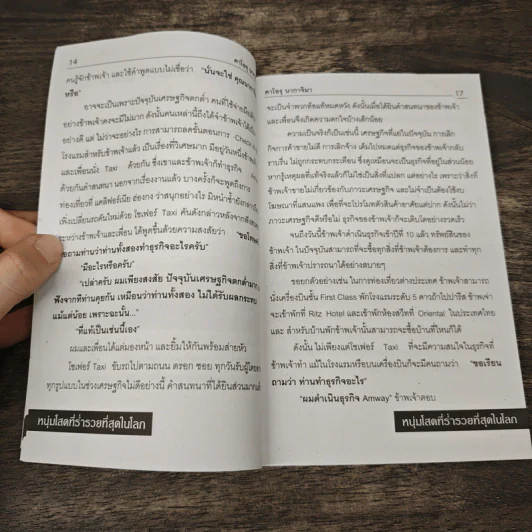 14
คาโอรุ
คนรู้จักข้าพเจ้า และใช้คำพูดแบบไม่เชื่อว่า "นั่นจะใช่ คุณนาก
หรือ"
อาจจะเป็นเพราะปัจจุบันเศรษฐกิจตกต่ำ คนที่ใช้จ่ายมือเติบ
อย่างข้าพเจ้าคงจะมีไม่มาก ดังนั้นคนเหล่านี้ถึงได้จำข้าพเจ้าได้เป็น
อย่างดี แต่ ไม่ว่าจะอย่างไร การสามารถลดขั้นตอนการ Check
โรงแรมสำหรับข้าพเจ้าแล้ว เป็นเรื่องที่วิเศษมาก มีอยู่วันหนึ่งข้าพเจ้า
และเพื่อนนั่ง Taxi ด้วยกัน ซึ่งเขาและข้าพเจ้าก็ทำธุรกิจ
ด้วยกันคำสนทนา นอกจากเรื่องงานแล้ว บางครั้งก็จะพูดถึงการ
ท่องเที่ยวที่ แคลิฟอร์เนีย ฮ่องกง ว่าสนุกอย่างไร มิหนำซ้ำยัง
เพิ่งเปลี่ยนรถคันใหม่ด้วย โชเฟอร์ Taxi คันดังกล่าวหลังจากฟัง
ระหว่างข้าพเจ้าและเพื่อน ได้พูดขึ้นด้วยความสงสัยว่า "ขอโทษ
ถามท่านว่าท่านทั้งสองทำธุรกิจอะไรครับ"
"มีอะไรหรือครับ"
"เปล่าครับ ผมเพียงสงสัย ปัจจุบันเศรษฐกิจตกต่ำมาก
ฟังจากที่ท่านคุยกัน เหมือนว่าท่านทั้งสอง ไม่ได้รับผลกระทบ
แม้แต่น้อย เพราะฉะนั้น..."
"ที่แท้เป็นเช่นนี้เอง"
ผมและเพื่อนได้แต่มองหน้า และยิ้มให้กันพร้อมส่ายหัว
โชเฟอร์ Taxi ขับรถไปตามถนน ตรอก ซอย ทุกวันรับผู้โดย
ทุกรูปแบบในช่วงเศรษฐกิจไม่ดีอย่างนี้ คำสนทนาที่ได้ยินส่วนมาก
หนุ่มโสดที่ร่ำรวยที่สุดในโลก
คาโอรุ นากาจิมา
17
จะเป็นจำพวกท้อแท้หมดหวัง ดังนั้นเมื่อได้ยินคำสนทนาของข้าพเจ้า
และเพื่อนจึงเกิดความตกใจบ้างเล็กน้อย
ความเป็นจริงก็เป็นเช่นนี้ เศรษฐกิจที่แย่ในปัจจุบัน การเลิก
กิจการค้าขายไม่ดี การเลิกจ้าง เต็มไปหมดแต่ธุรกิจของข้าพเจ้ากลับ
ราบรื่น ไม่ถูกกระทบกระเทือน ซึ่งดูเหมือนจะเป็นธุรกิจที่อยู่ในส่วนน้อย
หากรู้เหตุผลที่แท้จริงแล้วก็ไม่ใช่เป็นสิ่งที่แปลก แต่อย่างใด เพราะว่าสิ่งที่
ข้าพเจ้าขายไม่เกี่ยวข้องกับภาวะเศรษฐกิจ และไม่จำเป็นต้องใช้งบ
โฆษณาที่แสนแพง เพื่อที่จะโปรโมทตัวสินค้าอาศัยแต่ปาก ดังนั้นไม่ว่า
ภาวะเศรษฐกิจดีหรือไม่ ธุรกิจของข้าพเจ้าก็จะเติบโตอย่างรวดเร็ว
จนถึงวันนี้ข้าพเจ้าดำเนินธุรกิจเข้าปีที่ 10 แล้ว ทรัพย์สินของ
ข้าพเจ้า ในปัจจุบันสามารถที่จะซื้อทุกสิ่งที่ข้าพเจ้าต้องการ และทำทุก
สิ่งที่ข้าพเจ้าปรารถนาได้อย่างสบายๆ
ขอยกตัวอย่างเช่น ในการท่องเที่ยวต่างประเทศ ข้าพเจ้าสามารถ
นั่งเครื่องบินชั้น First Class พักโรงแรมระดับ 5 ดาวถ้าไปปารีส ข้าพเจ้า
จะเข้าพักที่ Ritz Hotel และเข้าพักห้องสวีทที่ Oriental ในประเทศไทย
และ สำหรับบ้านพักข้าพเจ้านั้นสามารถจะซื้อบ้านที่ไหนก็ได้
ดังนั้น ไม่เพียงแต่โชเฟอร์ Taxi ที่จะมีความสนใจในธุรกิจที่
ข้าพเจ้าทำ แม้ในโรงแรมหรือบนเครื่องบินก็จะมีคนถามว่า "ขอเรียน
ถามว่า ท่านทำธุรกิจอะไร"
"ผมดำเนินธุรกิจ Amway" ข้าพเจ้าตอบ
หนุ่มโสดที่ร่ำรวยที่สุดในโลก